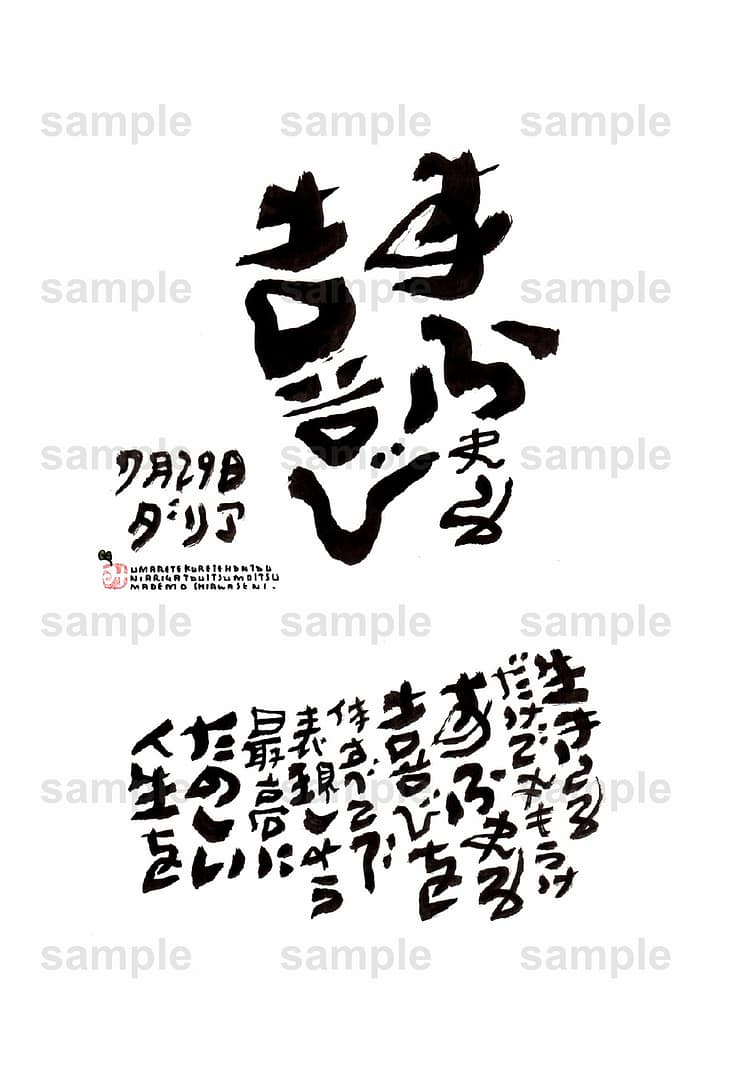 sample sample sample
あふれる
喜び
sample sample sample
sample sample sample
7月29日
ダリア
UMARETEKURETEHONTOU
NIARIGATOUITSUMOITSU
MADEMO SHIAWASENI.
sample sample sample
生きている
だけでももうけ
あふれる
喜びを
体すべてで
表現しよう
最高に
たのしい
人生を
sample sample sample
sample sample sample